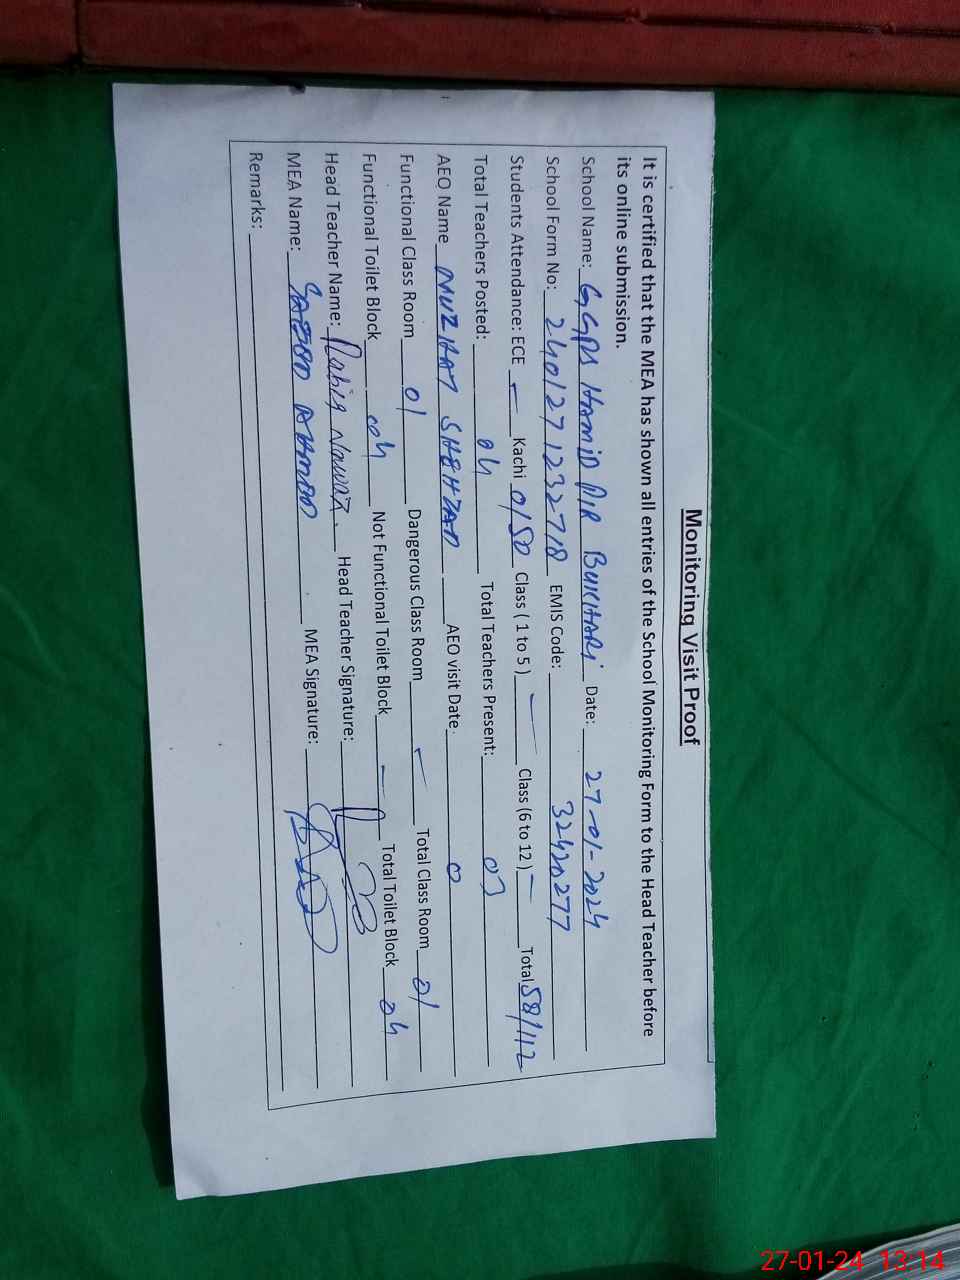 Monitoring Visit Proof
It is certified that the MEA has shown all entries of the School Monitoring Form to the Head Teacher before
its online submission.
School Name: GGPS HAMID PIR BUKHARI Date: 27-01-2024
School Form No: 2401271232718 EMIS Code: 32420277
Students Attendance: ECE - Kachi 0/50 Class ( 1 to 5 ) - Class (6 to 12 ) - Total 58/112
Total Teachers Posted: 04 Total Teachers Present: 03
AEO Name MUZHAT SHEHZAD AEO visit Date 0
Functional Class Room 01 Dangerous Class Room - Total Class Room 01
Functional Toilet Block 04 Not Functional Toilet Block - Total Toilet Block 04
Head Teacher Name: Rabia Nawaz. Head Teacher Signature:
MEA Name: SAEED AHMED MEA Signature:
Remarks:
27-01-24 13:14